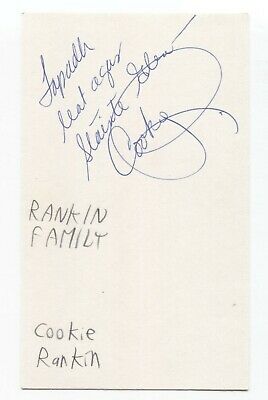 Tapadh
leat agus
Slàinte
Cookie
RANKIN
FAMILY
Cookie
Rankin